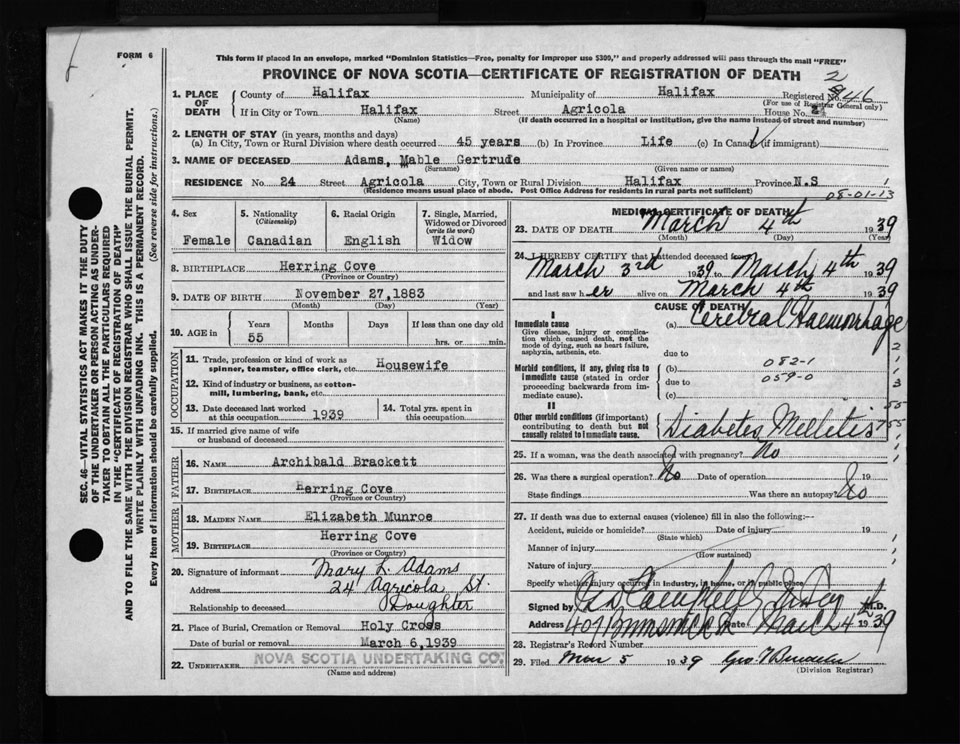 FORM 6
This form if placed in an envelope, marked "Dominion Statistics—Free, penalty for improper use $300," and properly addressed will pass through the mail "FREE"
PROVINCE OF NOVA SCOTIA—CERTIFICATE OF REGISTRATION OF DEATH
2
1. PLACE OF DEATH
County of Halifax Municipality of Halifax Registered No. 46
(For use of Registrar General only)
If in City or Town Halifax Street Agricola House No. 24
(Name) (If death occurred in a hospital or institution, give the name instead of street and number)
2. LENGTH OF STAY (in years, months and days)
(a) In City, Town or Rural Division where death occurred 45 years (b) In Province Life (c) In Canada (if immigrant)
3. NAME OF DECEASED Adams, Mable Gertrude
(Surname) (Given name or names)
RESIDENCE No. 24 Street Agricola City, Town or Rural Division Halifax Province N.S
(Residence means usual place of abode. Post Office Address for residents in rural parts not sufficient)
08-01-13
4. Sex
Female
5. Nationality
(Citizenship)
Canadian
6. Racial Origin
English
7. Single, Married, Widowed or Divorced
(write the word)
Widow
8. BIRTHPLACE Herring Cove
(Province or Country)
9. DATE OF BIRTH November 27, 1883
(Month) (Day) (Year)
10. AGE in Years Months Days If less than one day old
55 hrs. or min.
OCCUPATION
11. Trade, profession or kind of work as spinner, teamster, office clerk, etc. Housewife
12. Kind of industry or business, as cotton-mill, lumbering, bank, etc.
13. Date deceased last worked at this occupation 1939
14. Total yrs. spent in this occupation
15. If married give name of wife or husband of deceased
FATHER
16. NAME Archibald Brackett
17. BIRTHPLACE Herring Cove
(Province or Country)
MOTHER
18. MAIDEN NAME Elizabeth Munroe
19. BIRTHPLACE Herring Cove
(Province or Country)
20. Signature of informant Mary L. Adams
Address 24 Agricola St.
Relationship to deceased Daughter
21. Place of Burial, Cremation or Removal Holy Cross
Date of burial or removal March 6, 1939
22. UNDERTAKER NOVA SCOTIA UNDERTAKING CO.
(Name and address)
MEDICAL CERTIFICATE OF DEATH
23. DATE OF DEATH March 4th 1939
(Month) (Day) (Year)
24. I HEREBY CERTIFY that I attended deceased from
March 3rd 1939 to March 4th 1939
and last saw her alive on March 4th 1939
CAUSE OF DEATH
I
Immediate cause
Give disease, injury or complication which caused death, not the mode of dying, such as heart failure, asphyxia, asthenia, etc.
(a) Cerebral Haemorrhage
due to
Morbid conditions, if any, giving rise to immediate cause (stated in order proceeding backwards from immediate cause).
(b) 082-1
due to 059-0
(c)
II
Other morbid conditions (if important) contributing to death but not causally related to immediate cause.
Diabetes Mellitis
25. If a woman, was the death associated with pregnancy? No
26. Was there a surgical operation? No Date of operation 19
State findings Was there an autopsy? No
27. If death was due to external causes (violence) fill in also the following:—
Accident, suicide or homicide? Date of injury 19
(State which)
Manner of injury
(How sustained)
Nature of injury
Specify whether injury occurred in industry, in home, or in public place
Signed by M.D.
Address 407 Date March 4 1939
28. Registrar's Record Number
29. Filed Mar 5 1939 Geo
(Division Registrar)
SEC. 46—VITAL STATISTICS ACT MAKES IT THE DUTY
OF THE UNDERTAKER OR PERSON ACTING AS UNDERTAKER TO OBTAIN ALL THE PARTICULARS REQUIRED
IN THE "CERTIFICATE OF REGISTRATION OF DEATH"
AND TO FILE THE SAME WITH THE DIVISION REGISTRAR WHO SHALL ISSUE THE BURIAL PERMIT.
WRITE PLAINLY WITH UNFADING INK. THIS IS A PERMANENT RECORD.
Every item of information should be carefully supplied. (See reverse side for instructions.)